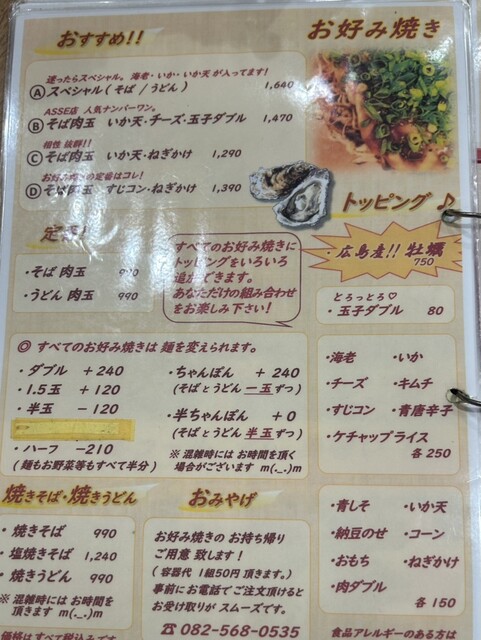 おすすめ!!
お好み焼き
迷ったらスペシャル。海老・いか・いか天 が入ってます!
Ⓐ スペシャル ( そば / うどん ) 1,640
ASSE店 人気ナンバーワン。
Ⓑ そば肉玉 いか天・チーズ・玉子ダブル 1,470
相性 抜群!!
Ⓒ そば肉玉 いか天・ねぎかけ 1,290
お好み の定番はコレ!
Ⓓ そば肉玉 すじコン・ねぎかけ 1,390
定番!
・そば 肉玉 990
・うどん 肉玉 990
すべてのお好み焼きに
トッピングをいろいろ
追加できます。
あなただけの組み合わせ
をお楽しみ下さい!
トッピング♪
・広島産!! 牡蠣
750
とろっとろ♡
・玉子ダブル 80
◎ すべてのお好み焼きは 麺を変えられます。
・ダブル + 240
・1.5玉 + 120
・半玉 − 120
・ハーフ −210
( 麺もお野菜等もすべて半分 )
・ちゃんぽん + 240
(そば と うどん 一玉 ずつ)
・半ちゃんぽん + 0
(そば と うどん 半玉 ずつ)
※ 混雑時には お時間を頂く
場合がございます m(._.)m
・海老 ・いか
・チーズ ・キムチ
・すじコン ・青唐辛子
・ケチャップライス
各 250
・青しそ ・いか天
・納豆のせ ・コーン
・おもち ・ねぎかけ
・肉ダブル
各 150
焼きそば・焼きうどん
・焼きそば 990
・塩焼きそば 1,240
・焼きうどん 990
※ 混雑時には お時間を
頂きます m(._.)m
おみやげ
お好み焼きの お持ち帰り
ご用意 致します!
( 容器代 1組50円 頂きます。)
事前にお電話で ご注文頂けると
お受け取りが スムーズです。
☎ 082-568-0535
価格はすべて税込みです
食品アレルギーのある方は